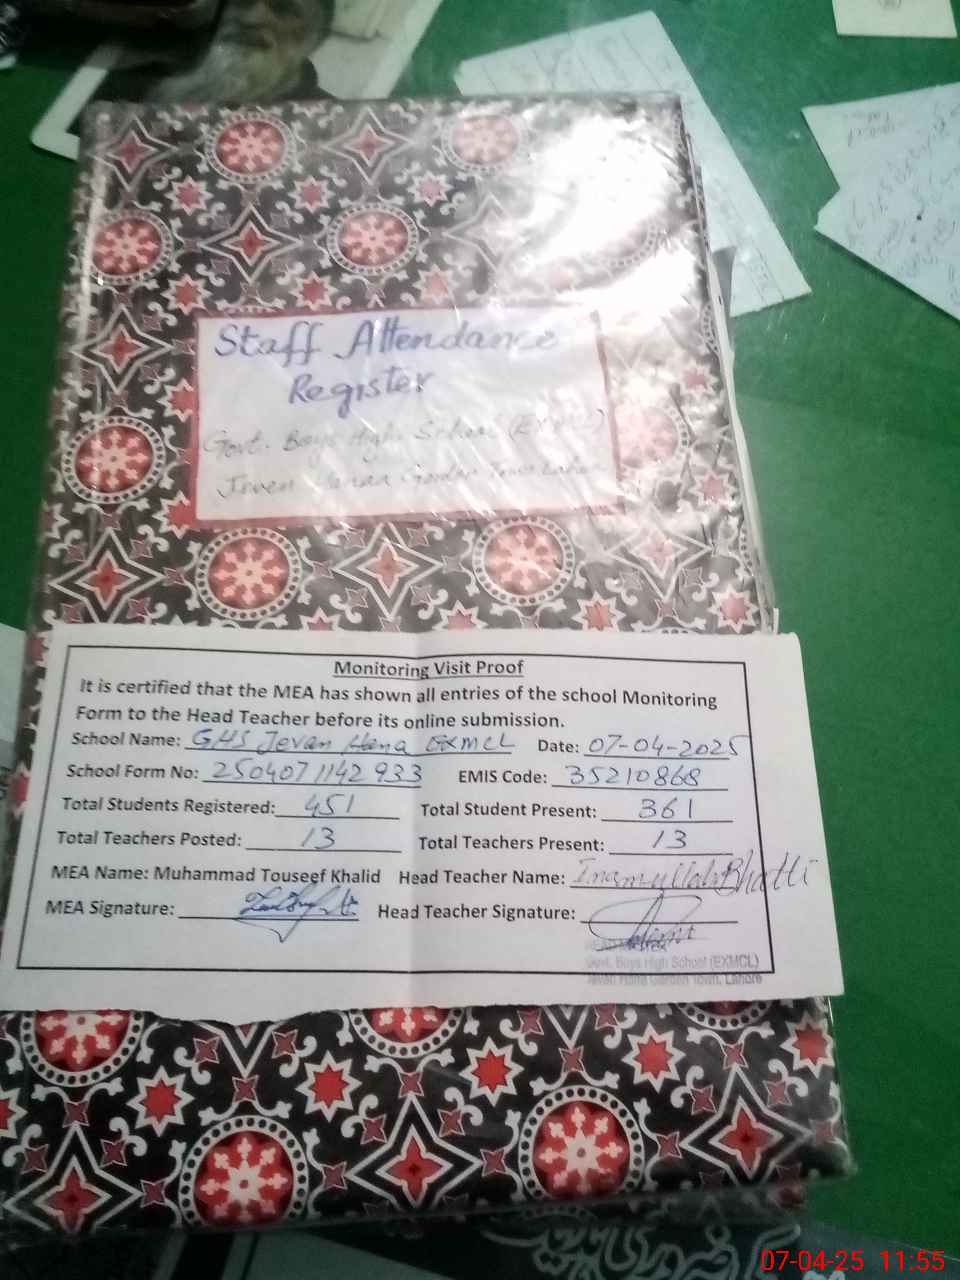 Staff Attendance
Register
Govt. Boys High School (EXMCL)
Jeven Hanaa Garden Town Lahore
Monitoring Visit Proof
It is certified that the MEA has shown all entries of the school Monitoring
Form to the Head Teacher before its online submission.
School Name: GHS Jevan Hana EXMCL Date: 07-04-2025
School Form No: 2504071142933 EMIS Code: 35210868
Total Students Registered: 451 Total Student Present: 361
Total Teachers Posted: 13 Total Teachers Present: 13
MEA Name: Muhammad Touseef Khalid Head Teacher Name: Inam-ullah Bhatti
MEA Signature: Head Teacher Signature:
HEAD MASTER
Govt. Boys High School (EXMCL)
Jevan Hana Garden Town, Lahore
07-04-25 11:55